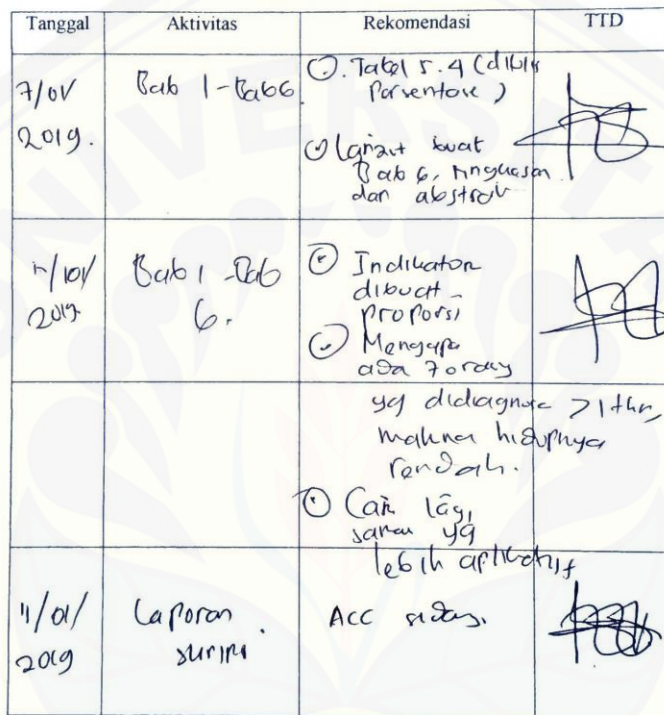 Tanggal Aktivitas Rekomendasi TTD
7/01/ Bab 1-Bab6 Tabel 5.4 (dibuat
2019. Persentase)
Lanjut buat
Bab 6, ringkasan
dan abstrak
/01/ Bab 1 -Bab Indikator
2019. 6. dibuat
proporsi
Mengapa
ada 7 orang
yg didiagnosa >1 thn,
makna hidupnya
rendah.
Cari lagi
saran yg
lebih aplikatif
11/01/ Laporan ACC sidang.
2019 skripsi.